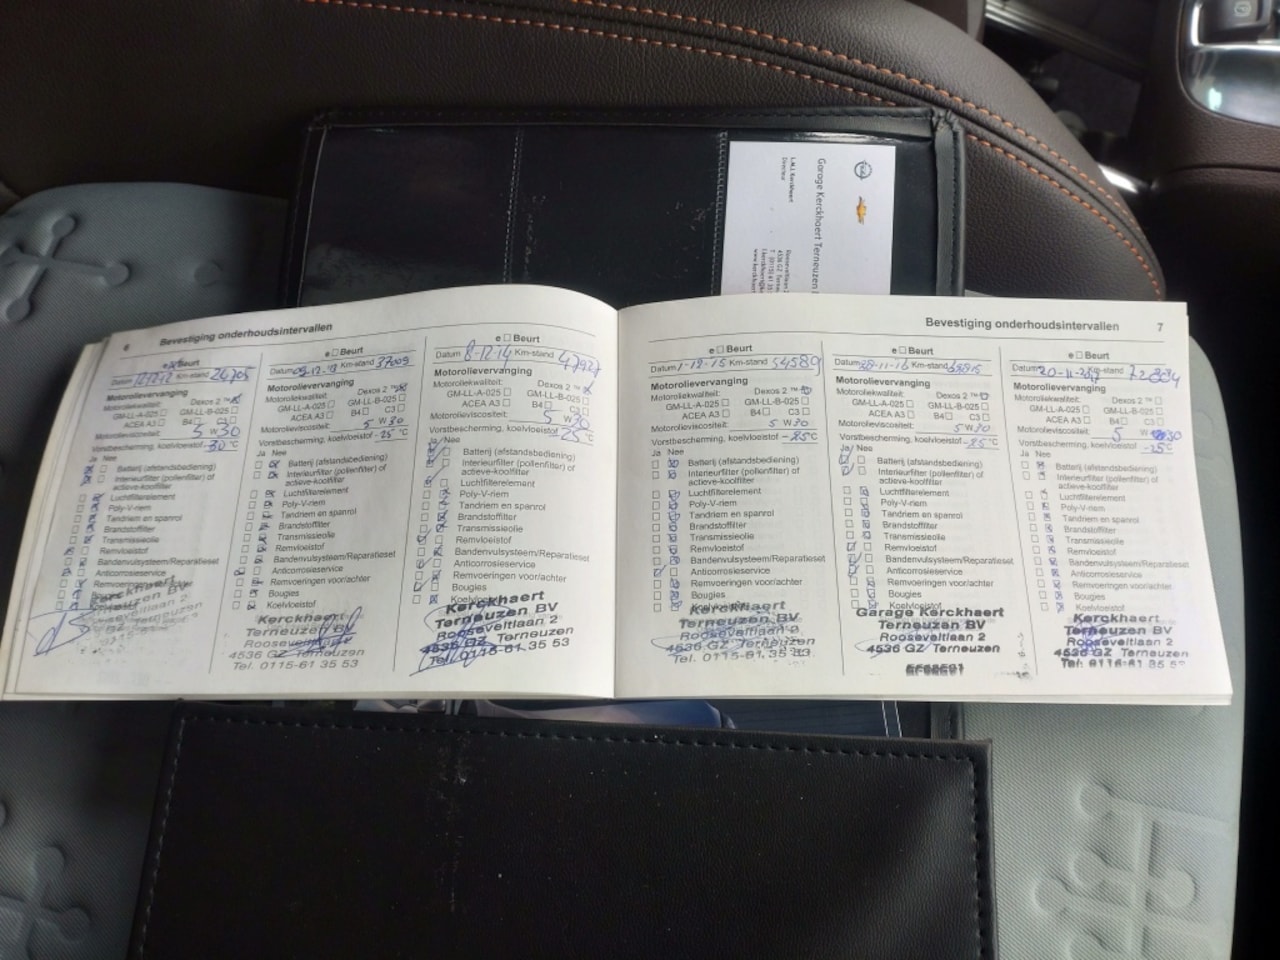 Garage Kerckhaert Terneuzen
L.M.J. Kerckhaert
Directeur
6
Bevestiging onderhoudsintervallen
Beurt
Datum 12-12-12 Km-stand 24705
Motorolievervanging
Motoroliekwaliteit: Dexos 2 ™
GM-LL-A-025 GM-LL-B-025
ACEA A3 B4 C3
Motorolieviscositeit: 5 W 30
Vorstbescherming, koelvloeistof -30 °C
Ja Nee
Batterij (afstandsbediening)
Interieurfilter (pollenfilter) of
actieve-koolfilter
Luchtfilterelement
Poly-V-riem
Tandriem en spanrol
Brandstoffilter
Transmissieolie
Remvloeistof
Bandenvulsysteem/Reparatieset
Anticorrosieservice
Remvoeringen voor/achter
e Beurt
Datum Km-stand 37009
Motorolievervanging
Motoroliekwaliteit: Dexos 2 ™
GM-LL-A-025 GM-LL-B-025
ACEA A3 B4 C3
Motorolieviscositeit: 5 W 30
Vorstbescherming, koelvloeistof -25 °C
Ja Nee
Batterij (afstandsbediening)
Interieurfilter (pollenfilter) of
actieve-koolfilter
Luchtfilterelement
Poly-V-riem
Tandriem en spanrol
Brandstoffilter
Transmissieolie
Remvloeistof
Bandenvulsysteem/Reparatieset
Anticorrosieservice
Remvoeringen voor/achter
Bougies
Koelvloeistof
Kerckhaert
Terneuzen BV
Rooseveltlaan 2
4536 GZ Terneuzen
Tel. 0115-61 35 53
e Beurt
Datum 8-12-14 Km-stand 47927
Motorolievervanging
Motoroliekwaliteit: Dexos 2 ™
GM-LL-A-025 GM-LL-B-025
ACEA A3 B4 C3
Motorolieviscositeit: 5 W 30
Vorstbescherming, koelvloeistof -25 °C
Ja Nee
Batterij (afstandsbediening)
Interieurfilter (pollenfilter) of
actieve-koolfilter
Luchtfilterelement
Poly-V-riem
Tandriem en spanrol
Brandstoffilter
Transmissieolie
Remvloeistof
Bandenvulsysteem/Reparatieset
Anticorrosieservice
Remvoeringen voor/achter
Bougies
Koelvloeistof
Kerckhaert
Terneuzen BV
Rooseveltlaan 2
4536 GZ Terneuzen
Tel. 0115-61 35 53
Bevestiging onderhoudsintervallen 7
e Beurt
Datum 1-12-15 Km-stand 54589
Motorolievervanging
Motoroliekwaliteit: Dexos 2 ™
GM-LL-A-025 GM-LL-B-025
ACEA A3 B4 C3
Motorolieviscositeit: 5 W 30
Vorstbescherming, koelvloeistof -25 °C
Ja Nee
Batterij (afstandsbediening)
Interieurfilter (pollenfilter) of
actieve-koolfilter
Luchtfilterelement
Poly-V-riem
Tandriem en spanrol
Brandstoffilter
Transmissieolie
Remvloeistof
Bandenvulsysteem/Reparatieset
Anticorrosieservice
Remvoeringen voor/achter
Bougies
Koelvloeistof
Kerckhaert
Terneuzen BV
Rooseveltlaan 2
4536 GZ Terneuzen
Tel. 0115-61 35 53
e Beurt
Datum 28-11-16 Km-stand
Motorolievervanging
Motoroliekwaliteit: Dexos 2 ™
GM-LL-A-025 GM-LL-B-025
ACEA A3 B4 C3
Motorolieviscositeit: 5 W 30
Vorstbescherming, koelvloeistof -25 °C
Ja Nee
Batterij (afstandsbediening)
Interieurfilter (pollenfilter) of
actieve-koolfilter
Luchtfilterelement
Poly-V-riem
Tandriem en spanrol
Brandstoffilter
Transmissieolie
Remvloeistof
Bandenvulsysteem/Reparatieset
Anticorrosieservice
Remvoeringen voor/achter
Bougies
Koelvloeistof
Garage Kerckhaert
Terneuzen BV
Rooseveltlaan 2
4536 GZ Terneuzen
e Beurt
Datum Km-stand
Motorolievervanging
Motoroliekwaliteit: Dexos 2 ™
GM-LL-A-025 GM-LL-B-025
ACEA A3 B4 C3
Motorolieviscositeit: 5 W 30
Vorstbescherming, koelvloeistof -25 °C
Ja Nee
Batterij (afstandsbediening)
Interieurfilter (pollenfilter) of
actieve-koolfilter
Luchtfilterelement
Poly-V-riem
Tandriem en spanrol
Brandstoffilter
Transmissieolie
Remvloeistof
Bandenvulsysteem/Reparatieset
Anticorrosieservice
Remvoeringen voor/achter
Bougies
Koelvloeistof
Kerckhaert
Terneuzen BV
Rooseveltlaan 2
4536 GZ Terneuzen